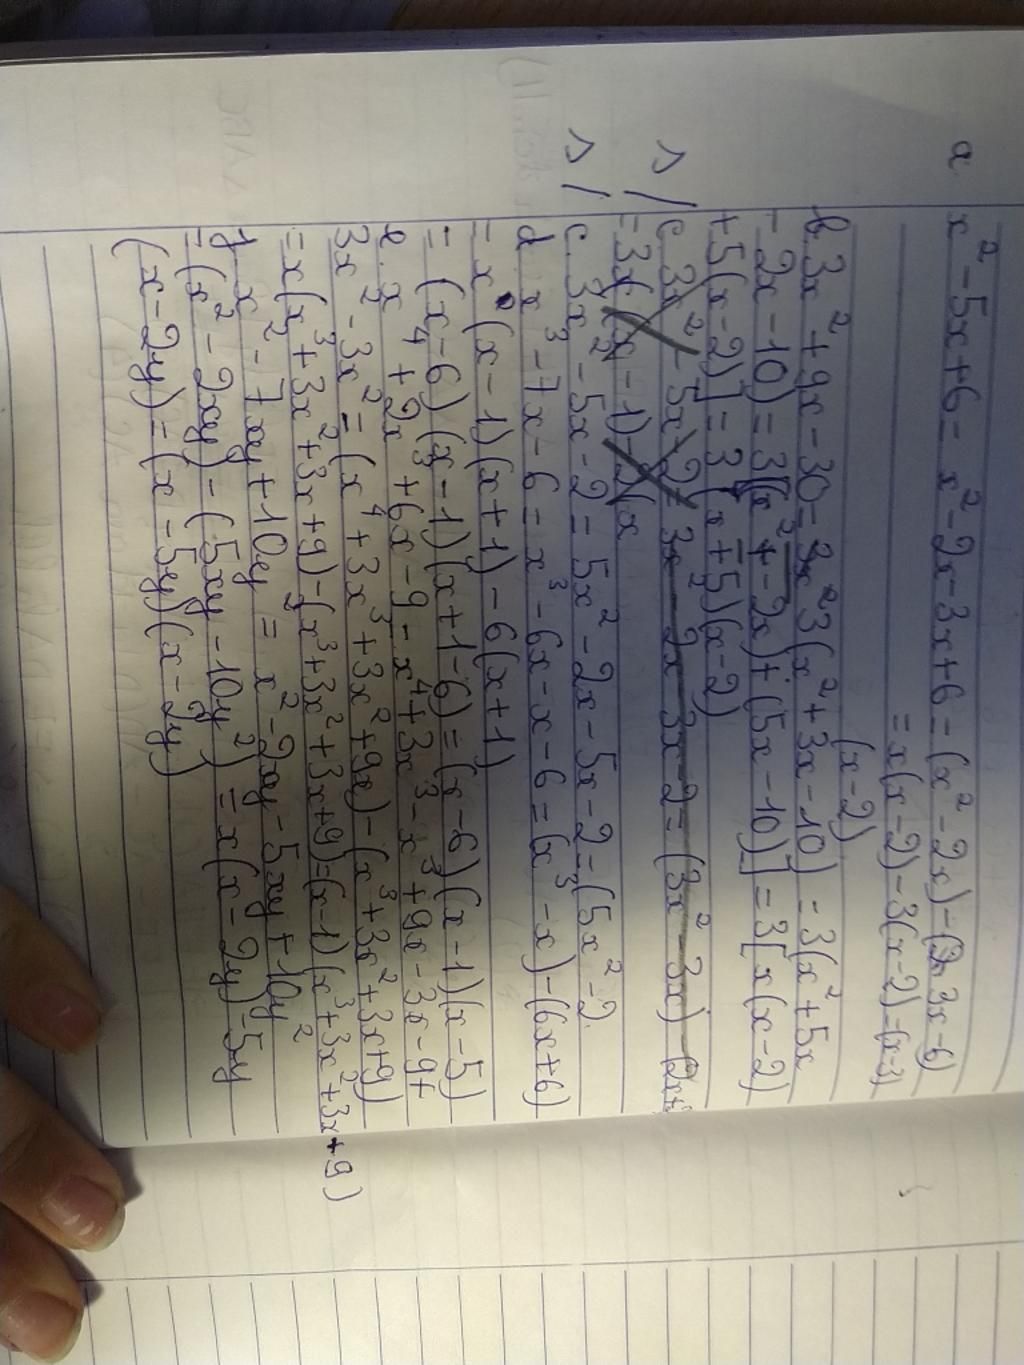 a x² - 5x + 6 = x² - 2x - 3x + 6 = (x² - 2x) - (3x - 6)
= x(x - 2) - 3(x - 2) = (x - 3)
(x - 2)
b. 3x² + 9x - 30 = 3(x² + 3x - 10) = 3(x² + 5x
- 2x - 10) = 3[(x² - 2x) + (5x - 10)] = 3[x(x - 2)
+ 5(x - 2)] = 3(x + 5)(x - 2)
c. 3x² - 5x - 2 = 3x² - 2x - 3x - 2 = (3x² - 3x) - (2x +
= 3x(x - 1) - 2(x
c. 3x² - 5x - 2 = 5x² - 2x - 5x - 2 = (5x² - 2
d. x³ - 7x - 6 = x³ - 6x - x - 6 = (x³ - x) - (6x + 6)
= x (x - 1)(x + 1) - 6(x + 1)
= (x - 6)(x - 1)(x + 1 - 6) = (x - 6)(x - 1)(x - 5)
e. x⁴ + 2x³ + 6x - 9 = x⁴ + 3x³ - x³ + 9x - 3x - 9 +
3x² - 3x² = (x⁴ + 3x³ + 3x² + 9x) - (x³ + 3x² + 3x + 9)
= x(x³ + 3x² + 3x + 9) - (x³ + 3x² + 3x + 9) = (x - 1)(x³ + 3x² + 3x + 9)
f x² - 7xy + 10y² = x² - 2xy - 5xy + 10y²
= (x² - 2xy) - (5xy - 10y²) = x(x - 2y) - 5y
(x - 2y) = (x - 5y)(x - 2y)